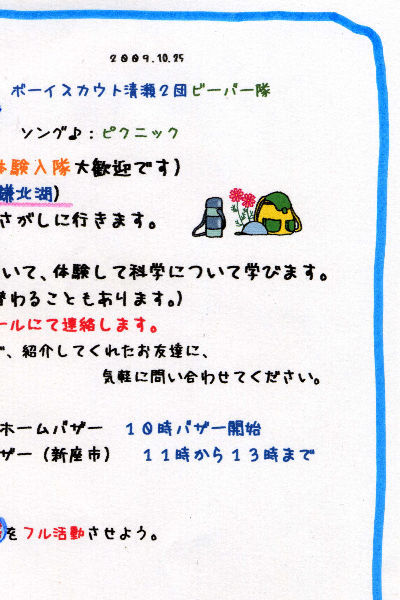 2009.10.25
ボーイスカウト清瀬2団ビーバー隊
ソング♪：ピクニック
体験入隊大歓迎です）
鎌北湖）
さがしに行きます。
いて、体験して科学について学びます。
替わることもあります。）
ールにて連絡します。
、紹介してくれたお友達に、
気軽に問い合わせてください。
ホームバザー 10時バザー開始
ザー（新座市） 11時から13時まで
をフル活動させよう。